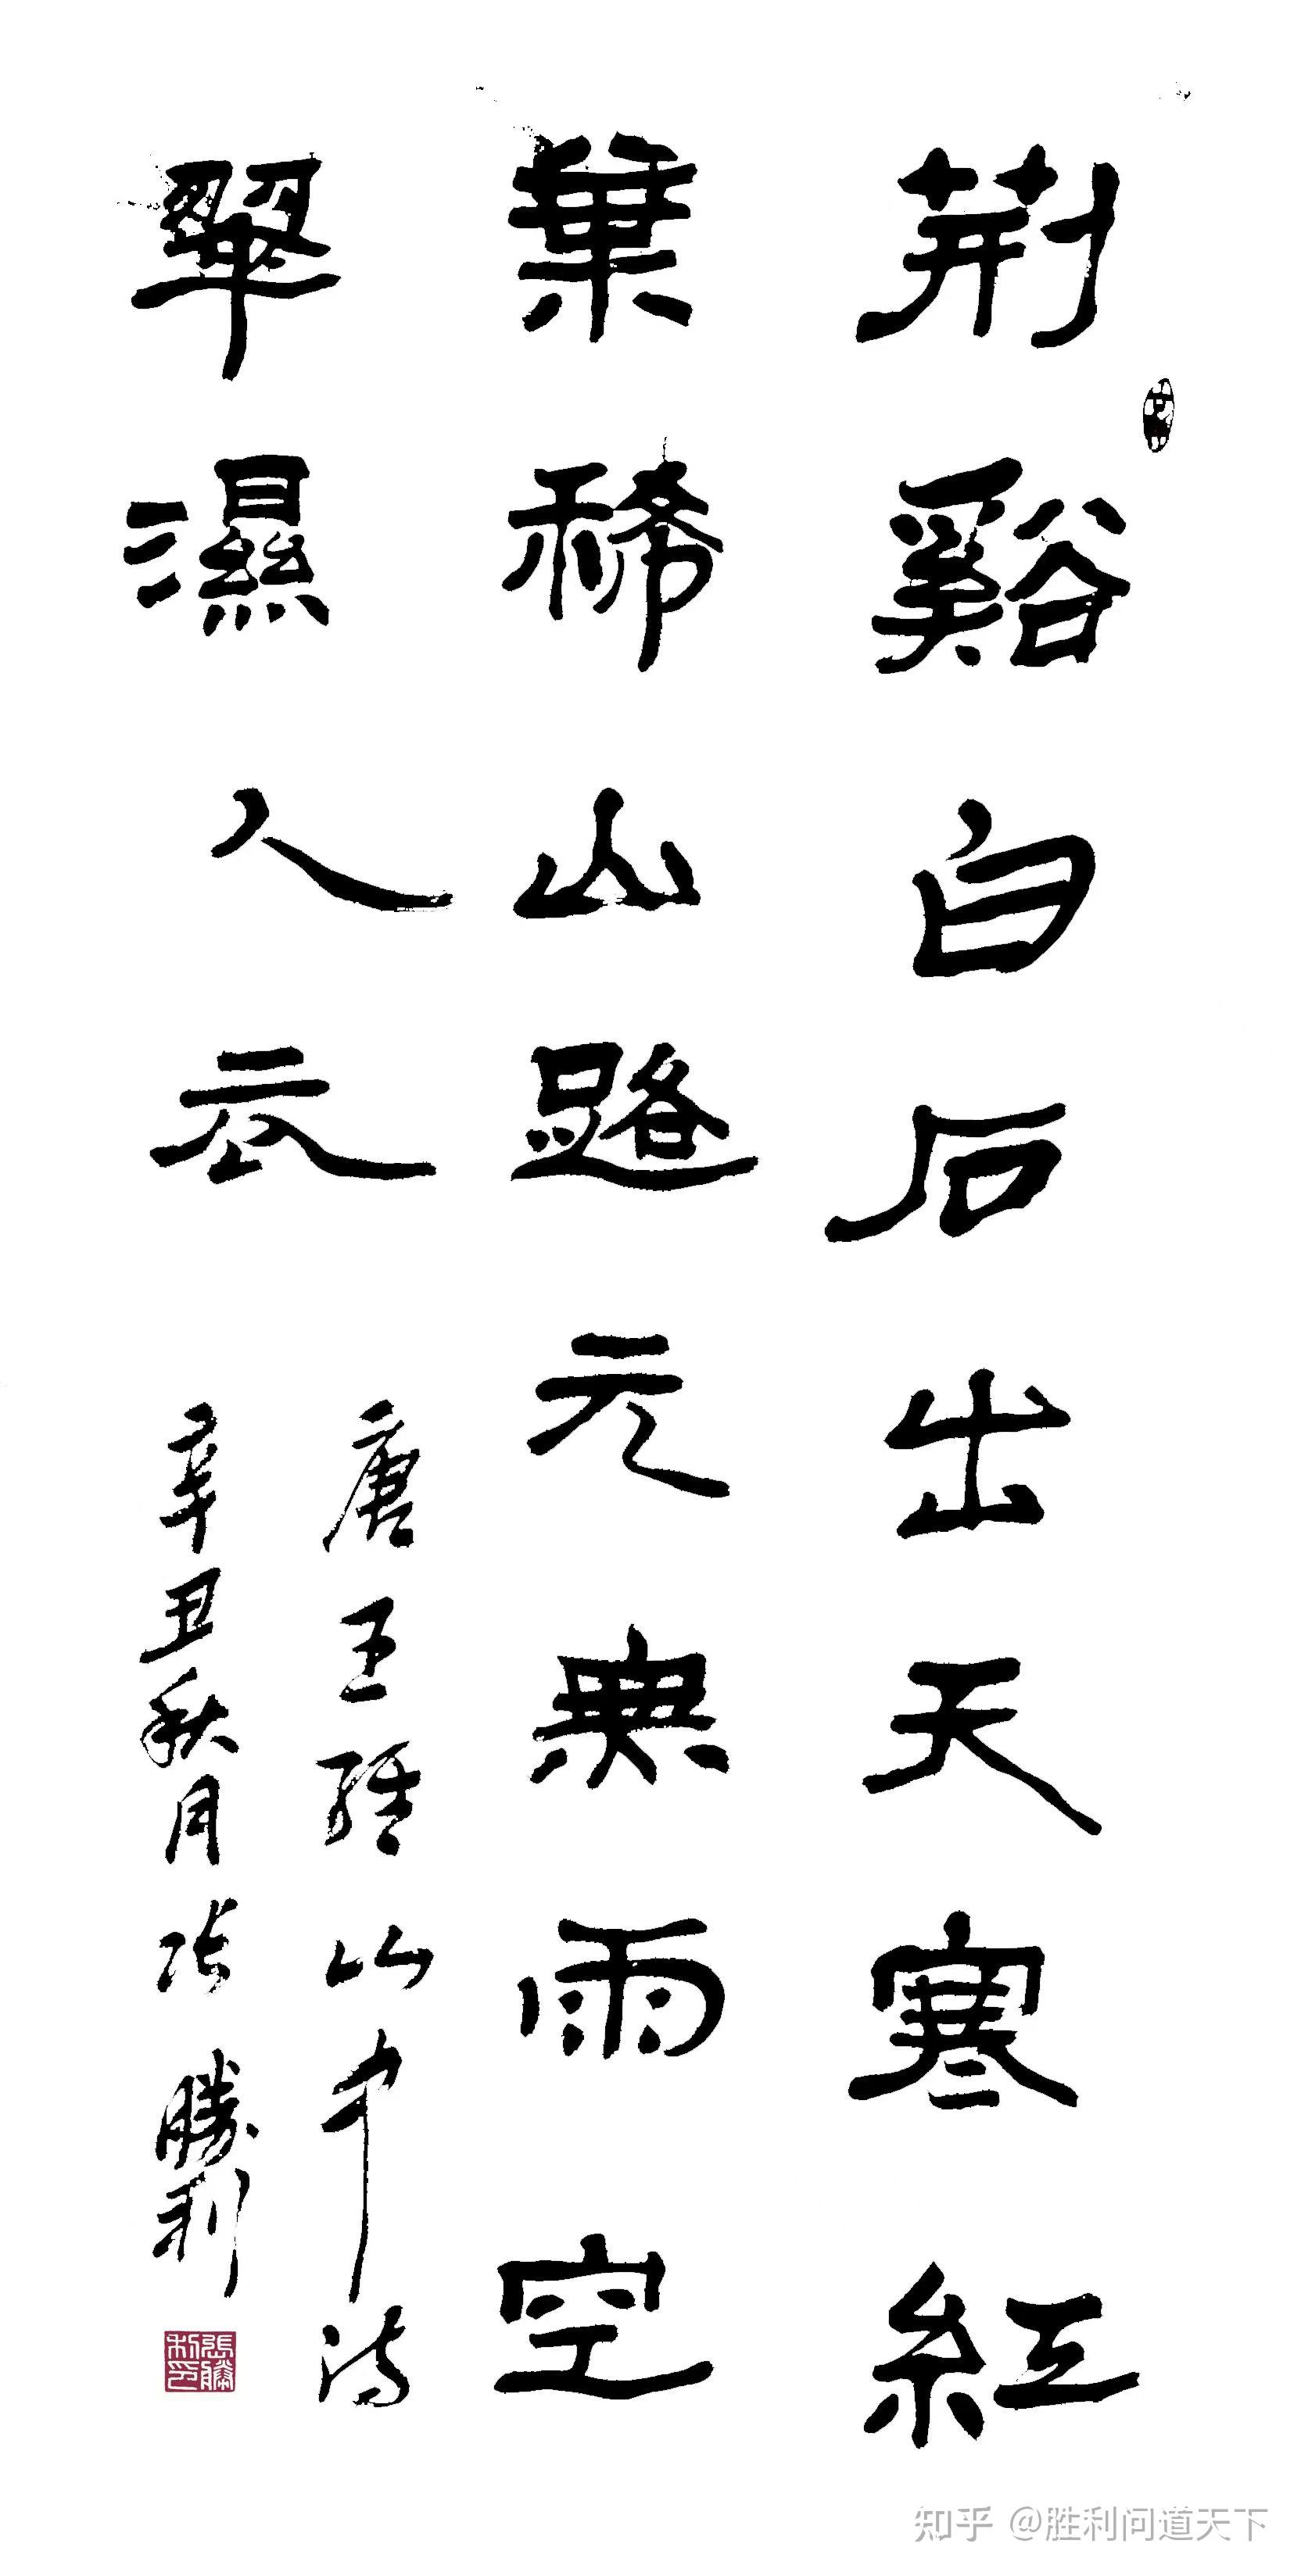 荆谿白石出天寒紅
葉稀山路元無雨空
翠濕人衣
唐王維山中詩
辛丑秋月張勝利
張勝利印
知乎 @胜利问道天下